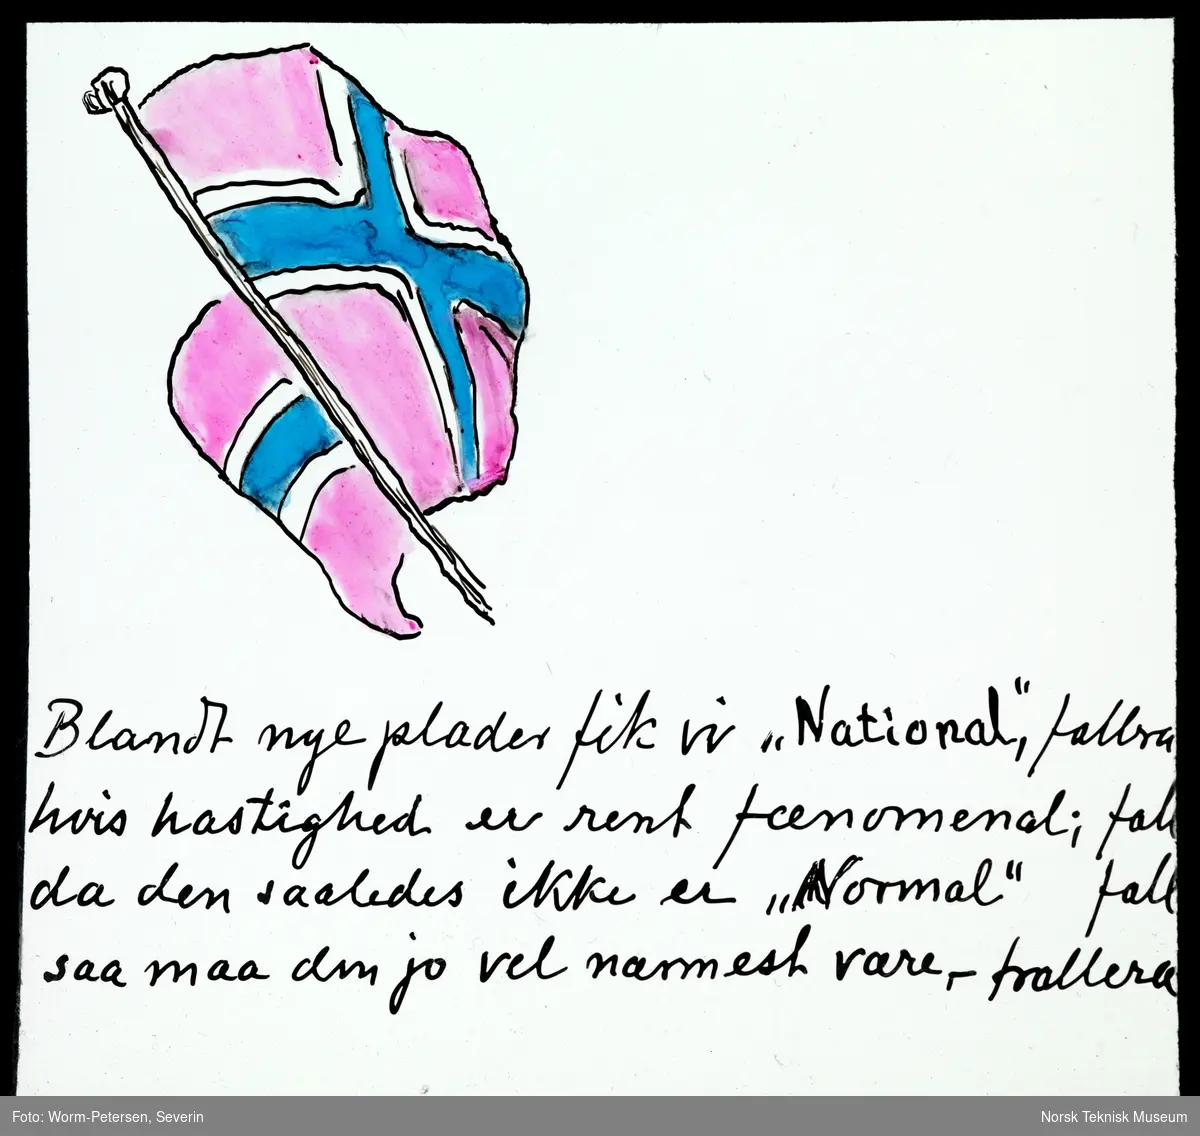 Blandt nye plader fik vi „National“, fallera
hvis hastighed er rent fænomenal; fall
da den saaledes ikke er „Normal“ fall
saa maa den jo vel nærmest være, – trallera
Foto: Worm-Petersen, Severin
Norsk Teknisk Museum